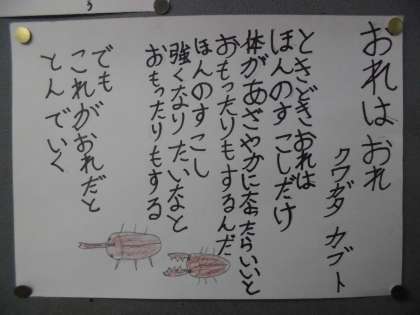 おれは おれ
クワガタ カブト
ときどきおれは
ほんのすこしだけ
体があざやかになったらいいと
おもったりもするんだ
ほんのすこし
強くなりたいなと
おもったりもする
でも
これがおれだと
とんでいく